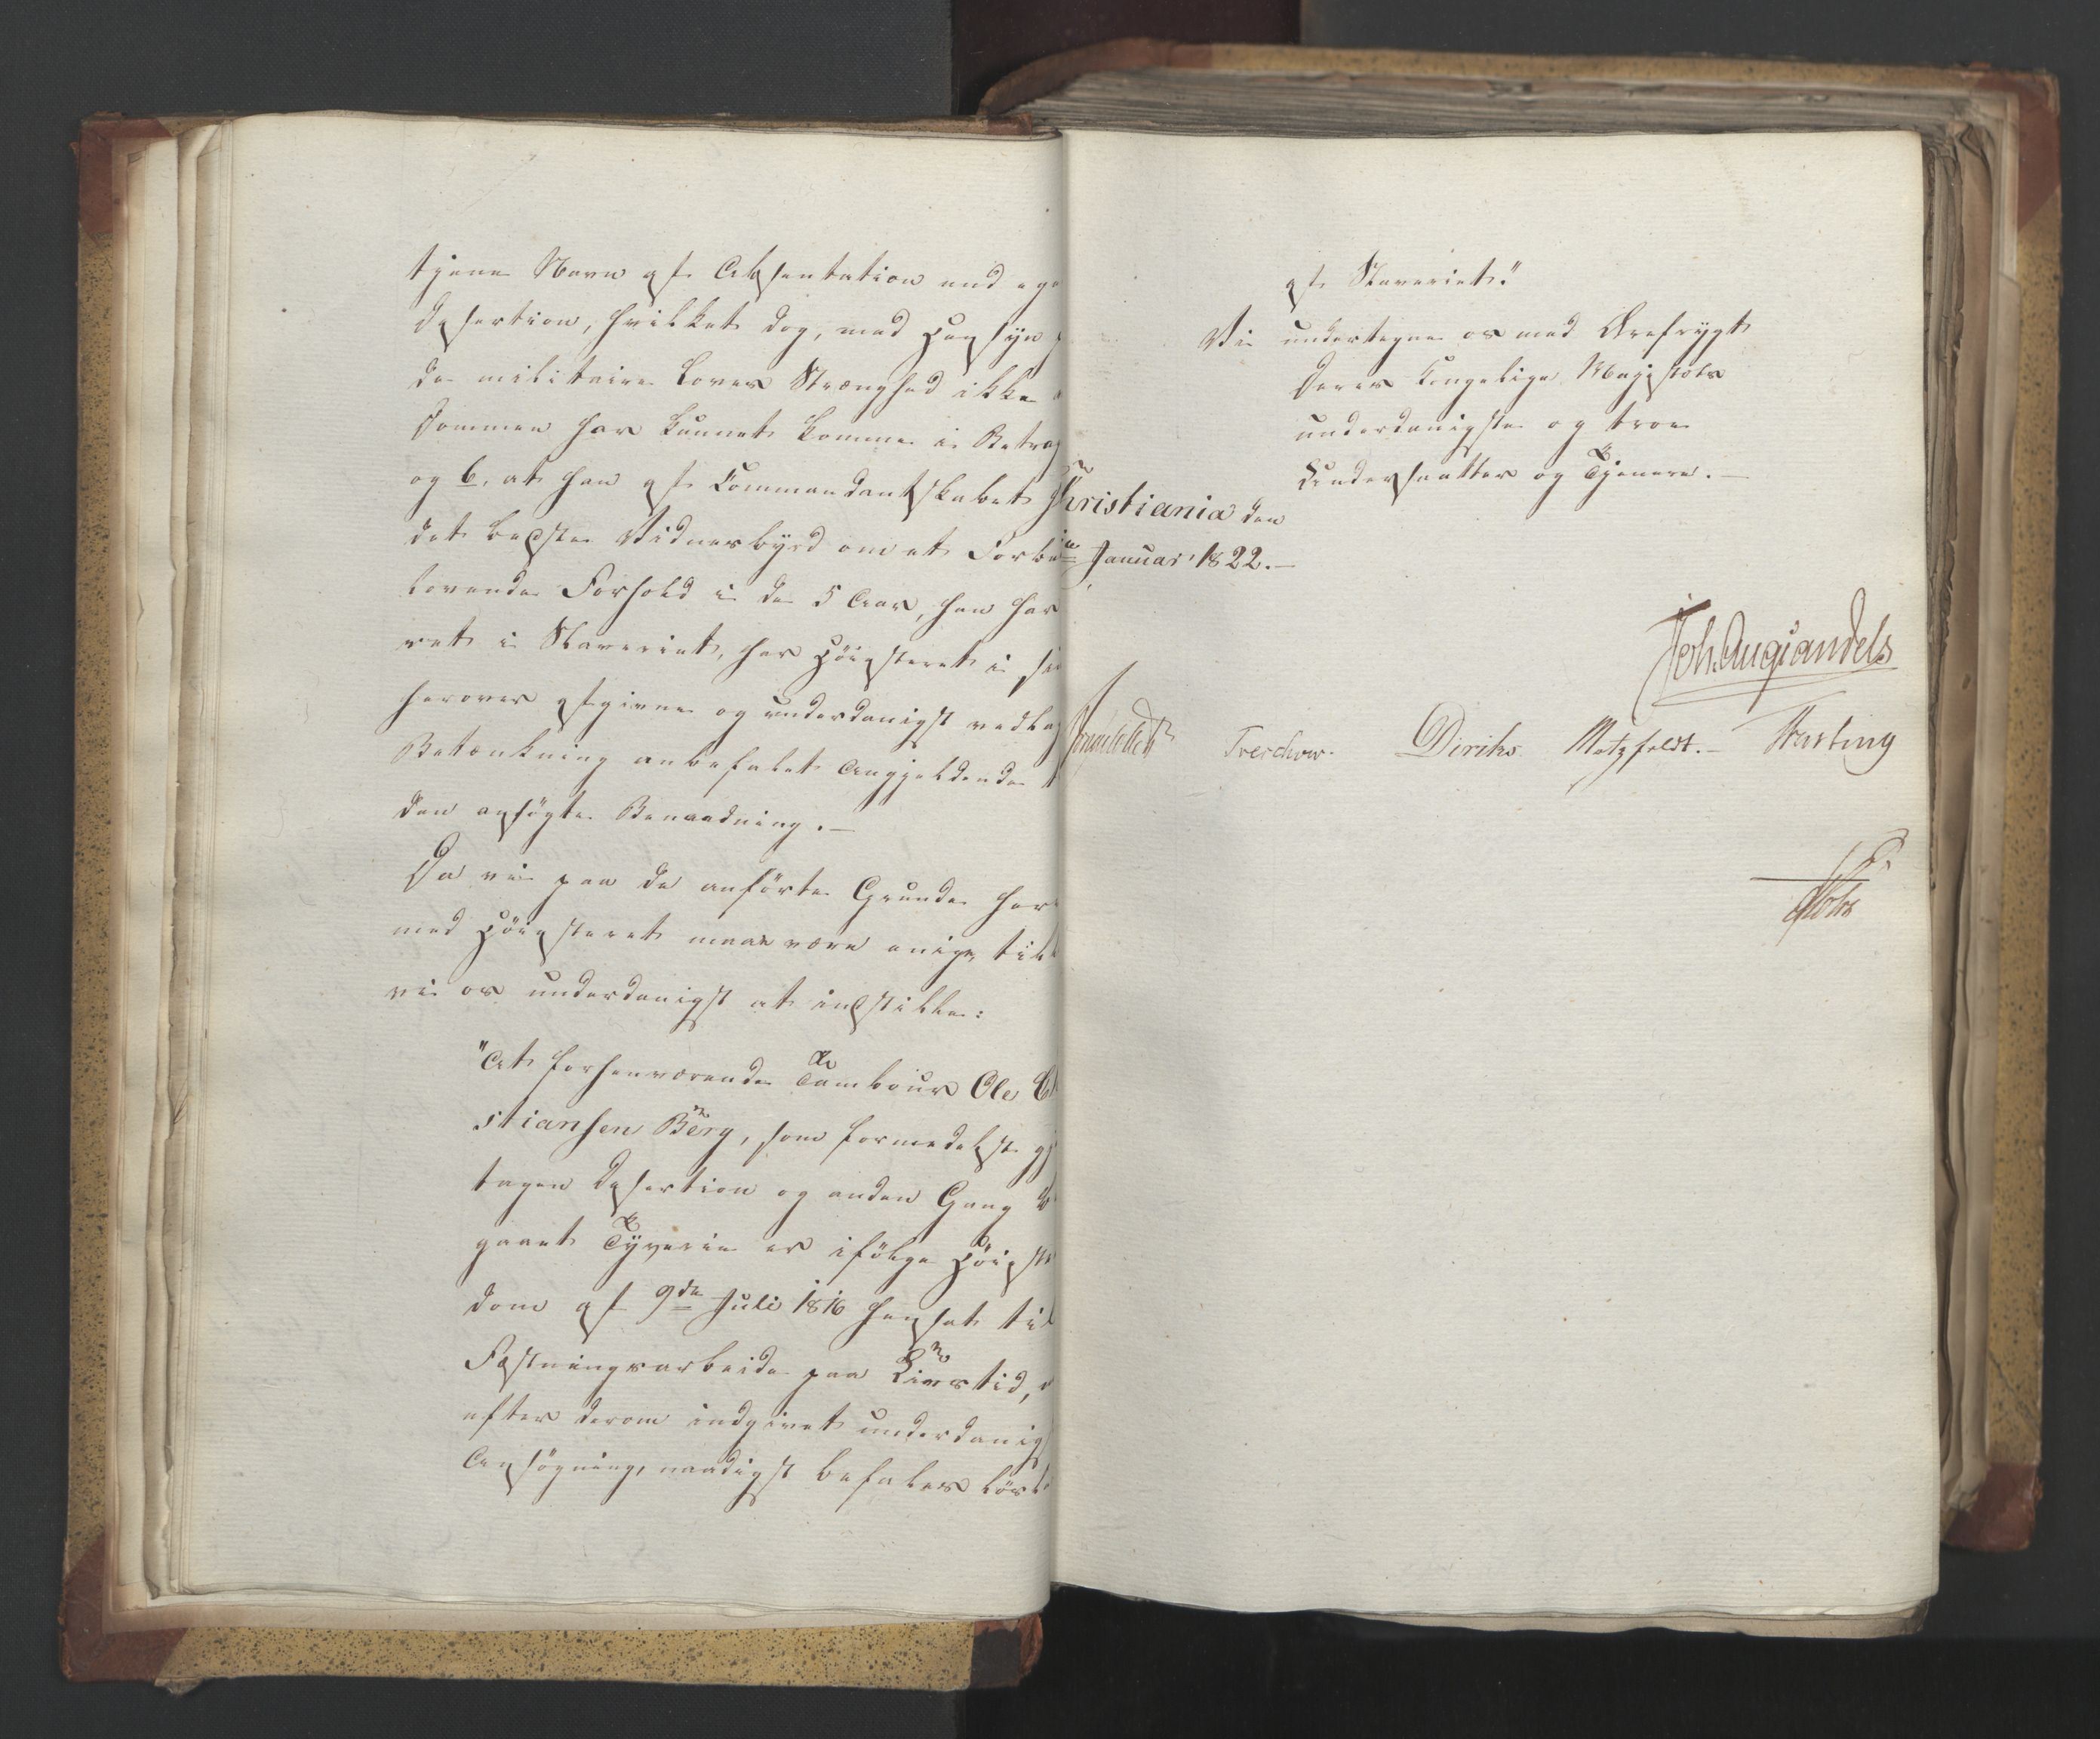 tjene Navn af Absentation end ege
Desertion, hvilket dog, med Hensyn
de militaire Loves Strænghed ikke
Dommen har kunnet komme i Betrag
og 6, at han af Commandantskabet
det bedste Vidnesbyrd om et Forbe
lovende Forhold i de 5 Aar, han har
ret i Slaveriet, har Høiesteret i sin
herover afgivne og underdanigst vedlag
Betænkning anbefalet Angjeldende t
den ansøgte Benaadning. —
Da vi paa de anførte Grunde her
med Høiesteret maae være enige, till
vi os underdanigst at indstille:
"At forhenværende Tambour Ole C
stiansen Berg, som formedelst
tagen Desertion og anden Gang
gaaet Tyverie er ifølge Høieste
dom af 9de Juli 1816 hensat til
Fæstningsarbeide paa Livstid,
efter derom indgivet underdanigst
Ansøgning, naadigst befales løsl
af Slaveriet."
Vi undertegne os med Ærefrygt
Deres Kongelige Majestæts
underdanigste og troe
Undersaatter og Tjenere. —
Christiania den
Januar 1822. —
Joh. Aug Sandels
Sommerfeldt Treschow. Diriks. Motzfeldt. — Fasting
Holst